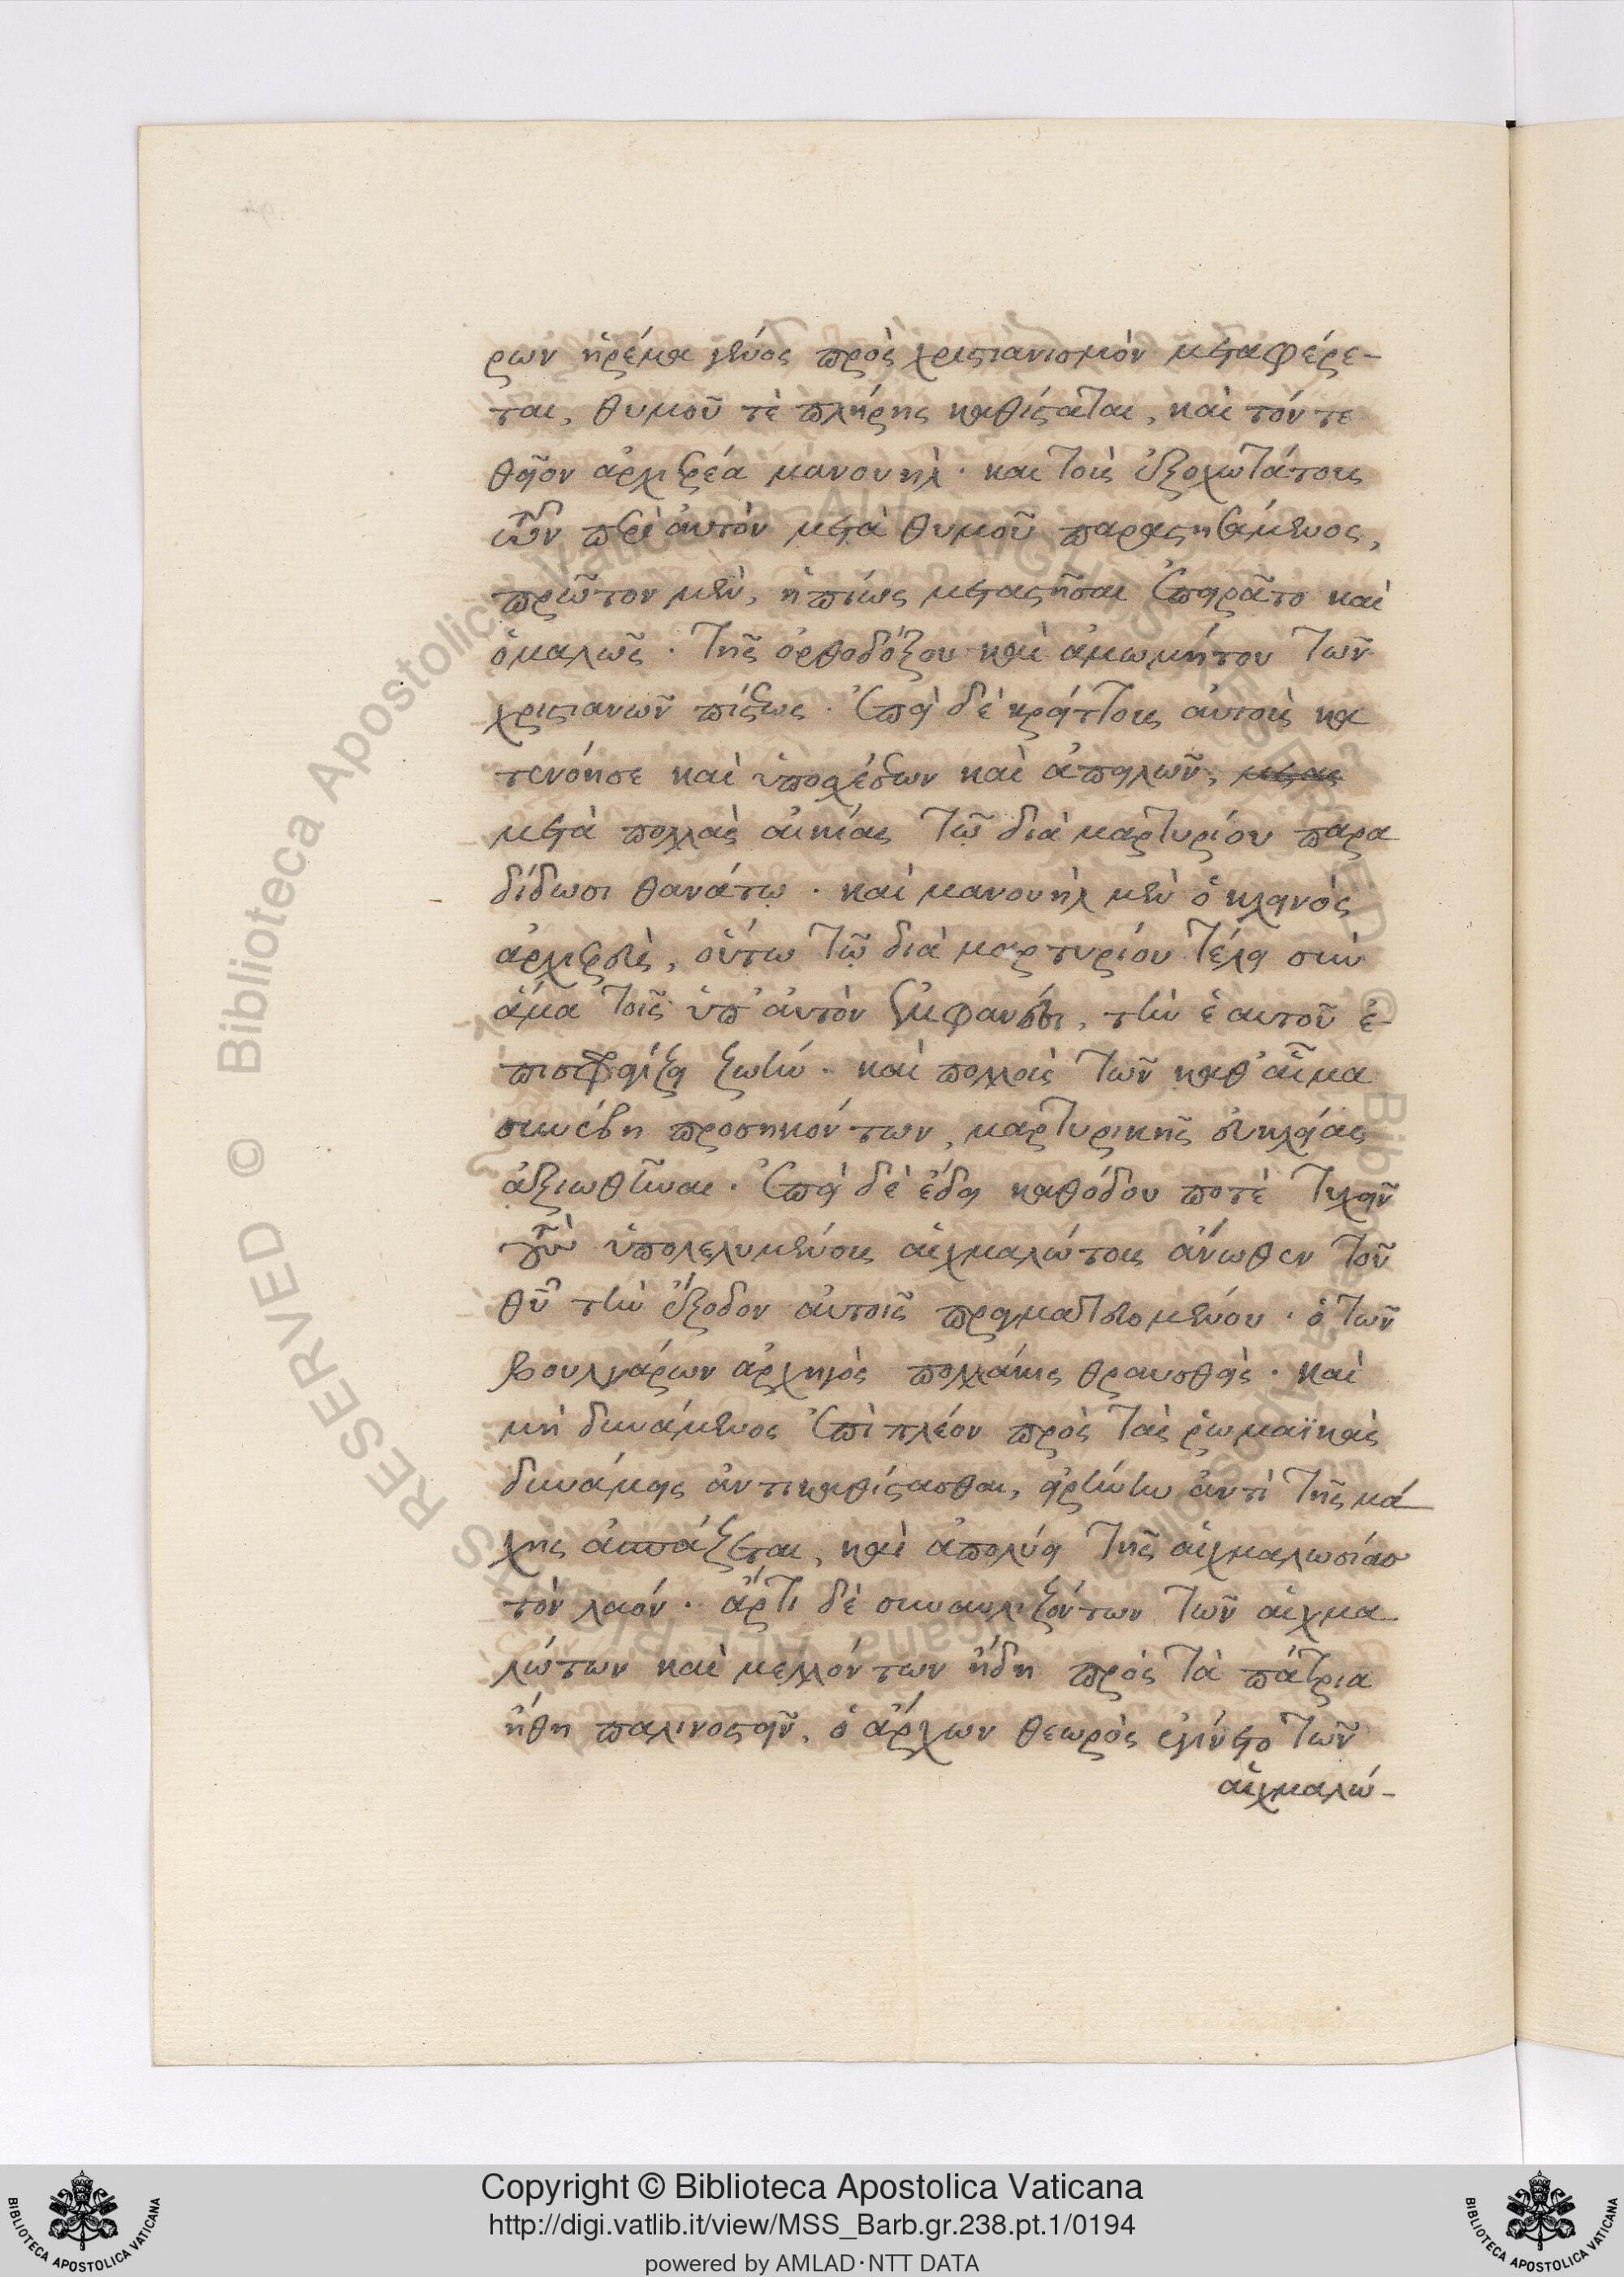 ρων ἠρέμα γένος πρὸς χριστιανισμὸν μεταφέρε-
ται, θυμοῦ τὲ πλήρης καθίσταται, καὶ τόν τε
θεῖον ἀρχιερέα μανουὴλ· καὶ τοὺς ἐξοχωτάτους
τῶν περὶ αὐτὸν μετὰ θυμοῦ παραστησάμενος,
πρῶτον μὲν, ἠπίως μεταστῆσαι ἐπειρᾶτο καὶ
ὁμαλῶς· τῆς ὀρθοδόξου καὶ ἀμωμήτου τῶν
χριστιανῶν πίστεως. ἐπεὶ δὲ κρείττους αὐτοὺς κα
τενόησε καὶ ὑποσχέσεων καὶ ἀπειλῶν,
μετὰ πολλὰς αἰκίας τῷ διὰ μαρτυρίου παρα
δίδωσι θανάτῳ. καὶ μανουὴλ μὲν ὁ κλεινὸς
ἀρχιερεὺς, οὕτω τῷ διὰ μαρτυρίου τέλει σὺν
ἅμα τοῖς ὑπ' αὐτὸν ἐμφανῶς, τὴν ἑαυτοῦ ἐ-
πισφραγίζει ζωήν. καὶ πολλοὺς τῶν καθ' αἷμα
συνέβη προσηκόντων, μαρτυρικῆς εὐκλείας
ἀξιωθῆναι. ἐπεὶ δὲ ἔδει καθόδου ποτὲ τυχεῖν
τοὺς ὑπολελυμένους αἰχμαλώτους ἄνωθεν τοῦ
θυ τὴν ἔξοδον αὐτοῖς πραγματευομένου. ὁ τῶν
βουλγάρων ἀρχηγὸς πολλάκις θραυσθεὶς. καὶ
μὴ δυνάμενος ἐπὶ πλέον πρὸς τὰς ῥωμαϊκὰς
δυνάμεις ἀντικαθίστασθαι, εἰρήνην ἀντὶ τῆς μά
χης ἀσπάζεται, καὶ ἀπολύει τῆς αἰχμαλωσίας
τὸν λαόν. ἄρτι δὲ συναυλιζόντων τῶν αἰχμα
λώτων καὶ μελλόντων ἤδη πρὸς τὰ πάτρια
ἤθη παλινοστεῖν, ὁ ἄρχων θεωρὸς ἐγίνετο τῶν
αἰχμαλώ-
Copyright © Biblioteca Apostolica Vaticana
http://digi.vatlib.it/view/MSS_Barb.gr.238.pt.1/0194
powered by AMLAD·NTT DATA
BIBLIOTECA APOSTOLICA VATICANA
BIBLIOTECA APOSTOLICA VATICANA